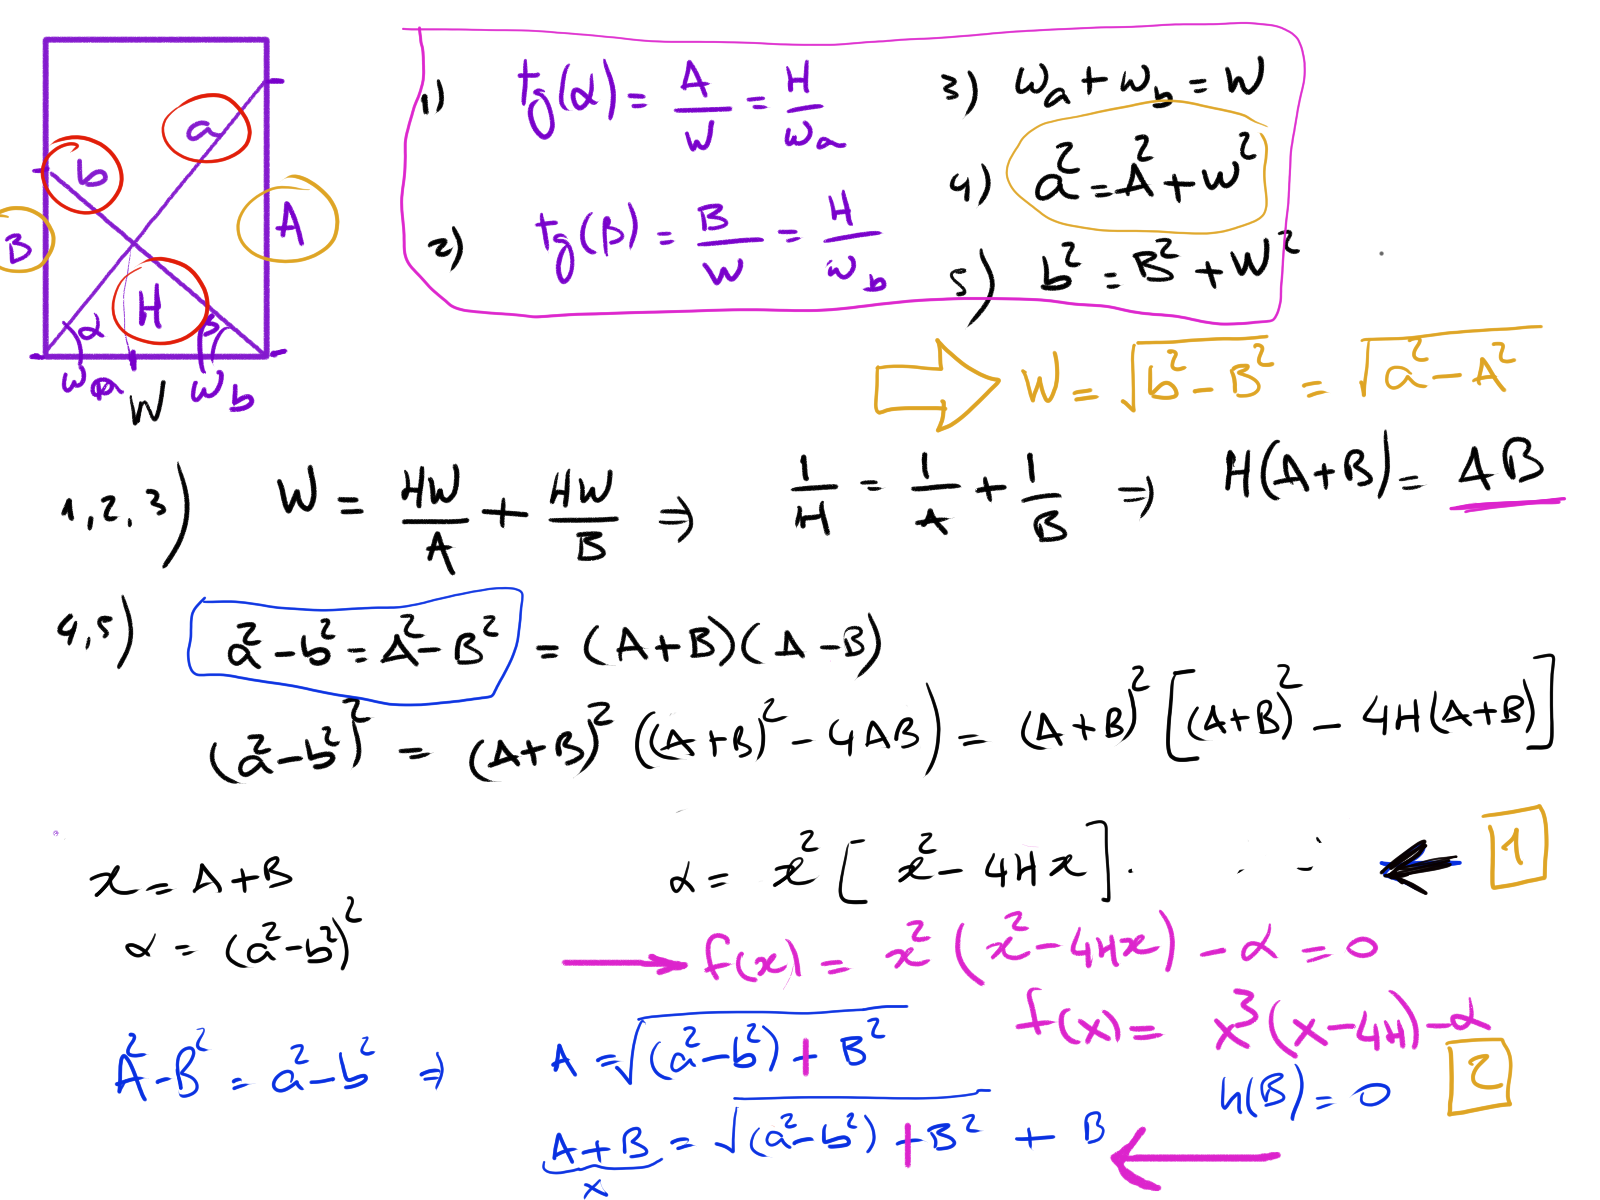 a
b
B
A
H
α
β
wₐ
W
w_b
1) tg(α) = A/W = H/wₐ
2) tg(β) = B/W = H/w_b
3) wₐ + w_b = W
4) a² = A² + W²
5) b² = B² + W²
W = √(b² - B²) = √(a² - A²)
1, 2, 3) W = HW/A + HW/B ⇒ 1/H = 1/A + 1/B ⇒ H(A+B) = AB
4,5) a² - b² = A² - B² = (A+B)(A-B)
(a² - b²)² = (A+B)² ((A+B)² - 4AB) = (A+B)² [(A+B)² - 4H(A+B)]
x = A+B
α = (a² - b²)²
α = x² [x² - 4Hx] . 1
→ f(x) = x² (x² - 4Hx) - α = 0
f(x) = x³(x - 4H) - α
A² - B² = a² - b² ⇒ A = √((a² - b²) + B²)
h(B) = 0 2
A + B = √((a² - b²) + B²) + B
x